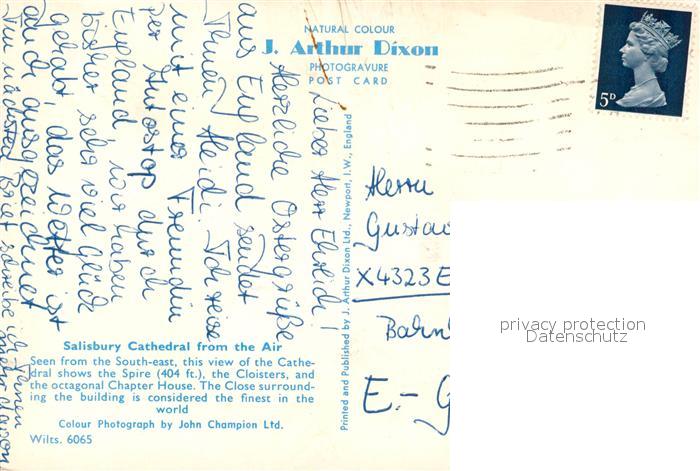 NATURAL COLOUR
J. Arthur Dixon
PHOTOGRAVURE
POST CARD
5D
Lieber Herr Ehrlich!
Herzliche Ostergrüße
aus England sendet
Ihnen Heidi. Ich reise
mit einer Freundin
per Autostop durch
England. Wir haben
bisher sehr viel Glück
gehabt, das Wetter ist
auch ausgezeichnet
Im nächsten Brief schreibe ich Ihnen
mehr davon
Printed and Published by J. Arthur Dixon Ltd., Newport, I.W., England
Herrn
Gustav
X4323 E
Bahn
E.-G
privacy protection
Datenschutz
Salisbury Cathedral from the Air
Seen from the South-east, this view of the Cathe-
dral shows the Spire (404 ft.), the Cloisters, and
the octagonal Chapter House. The Close surround-
ing the building is considered the finest in the
world
Colour Photograph by John Champion Ltd.
Wilts. 6065